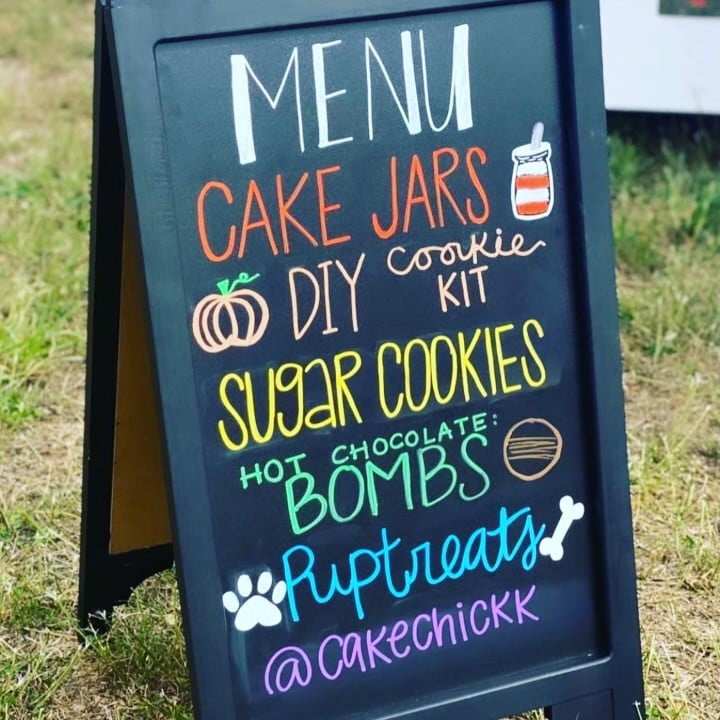 MENU
CAKE JARS
DIY cookie KIT
SUgaR COOKIES
HOT CHOCOLATE:
BOMBS
Puptreats
@cakechickk